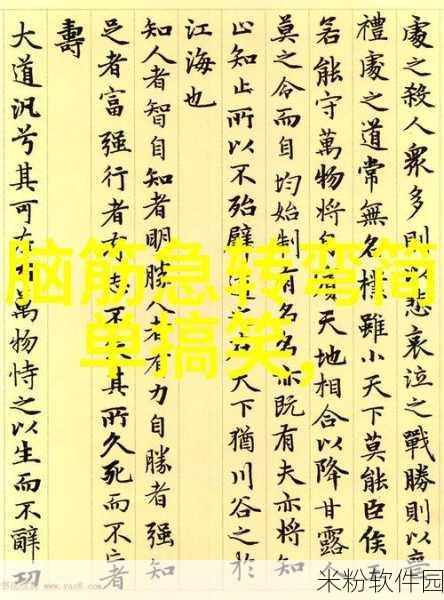 處之殺人眾多則以悲哀泣之戰勝則以
禮處之道常無名樸雖小天下莫能臣侯
若能守萬物將自賓天地相合以降甘露
莫之令而自均始制有名名亦既有夫亦將知
止知止所以不殆譬道之在天下猶川谷之於
江海也
知人者智自知者明勝人者有力自勝者強知
足者富強行者有志不失其所久死而不亡者
壽
大道汎兮其可左右萬物恃之以生而不辭功
脑筋急转弯简
单搞笑,
书法欣赏 www.yac8.com
米粉软件园